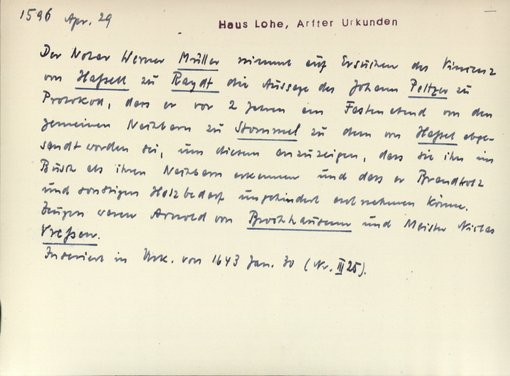 1596 Apr. 29
Haus Lohe, Arfter Urkunden
Der Notar Werner Müller nimmt auf Ersuchen des Vincenz
von Hassell zu Raydt die Aussage des Johann Peltzer zu
Protokoll, dass er vor 2 Jahren am Fastenabend von den
gemeinen Nachbarn zu Stommel zu dem von Hassel abge-
sandt worden sei, um diesem anzuzeigen, dass sie ihn im
Busch als ihren Nachbarn erkennen und dass er Brandholz
und sonstigen Holzbedarf ungehindert entnehmen könne.
Zeugen waren Arnold von Brochhausenn und Meister Niclas
Vressen.
Inseriert in Urk. von 1643 Jan. 30 (Nr. III 25).